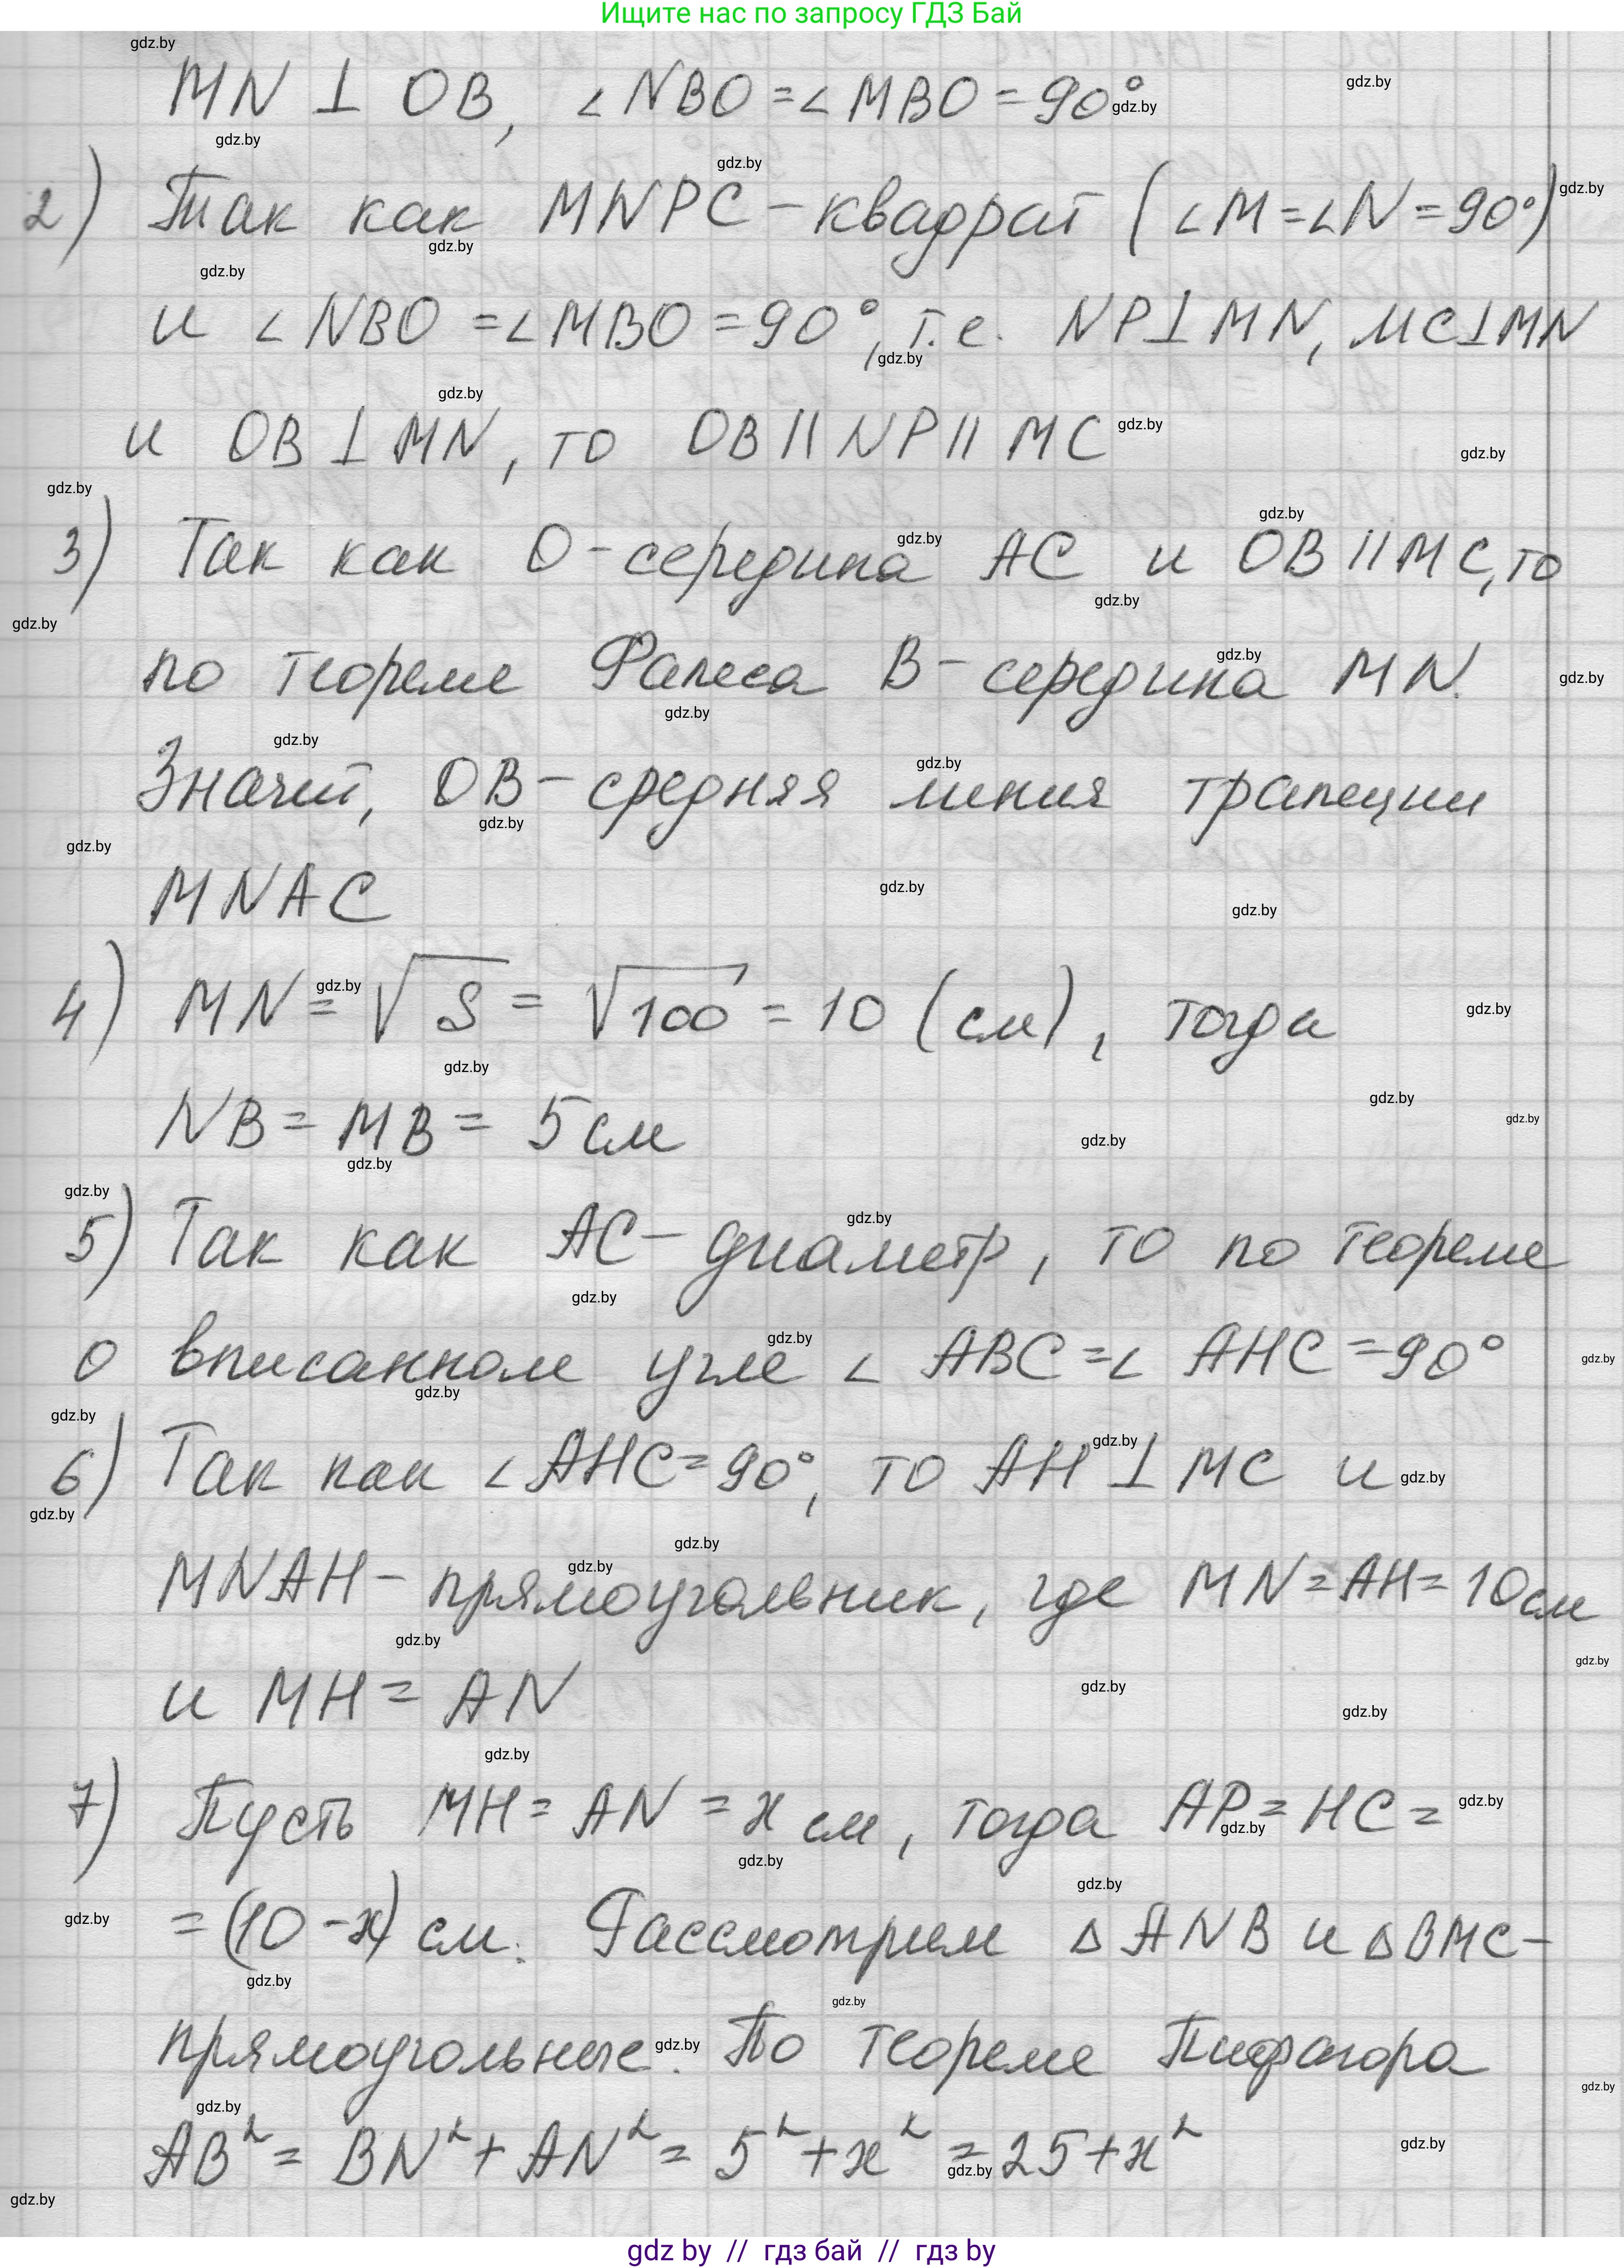 Ищите нас по запросу ГДЗ Бай
MN ⊥ OB, ∠NBO = ∠MBO = 90°
2) Так как MNPC - квадрат (∠M = ∠N = 90°)
и ∠NBO = ∠MBO = 90°, т.е. NP⊥MN, MC⊥MN
и OB ⊥ MN, то OB || NP || MC
3) Так как O - середина AC и OB || MC, то
по теореме Фалеса B - середина MN.
Значит, OB - средняя линия трапеции
MNAC
4) MN = √S = √100 = 10 (см), тогда
NB = MB = 5 см
5) Так как AC - диаметр, то по теореме
о вписанном угле ∠ABC = ∠AHC = 90°
6) Так как ∠AHC = 90°, то AH ⊥ MC и
MNAH - прямоугольник, где MN = AH = 10 см
и MH = AN
7) Пусть MH = AN = x см, тогда AP = HC =
= (10 - x) см. Рассмотрим △ANB и △BMC -
прямоугольные. По теореме Пифагора
AB² = BN² + AN² = 5² + x² = 25 + x²
gdz by // гдз бай // гдз by